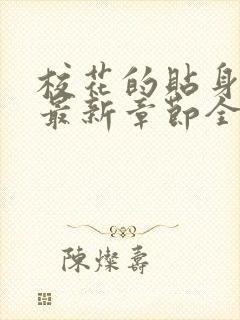 校花的貼身
最新章節全
陳燦壽